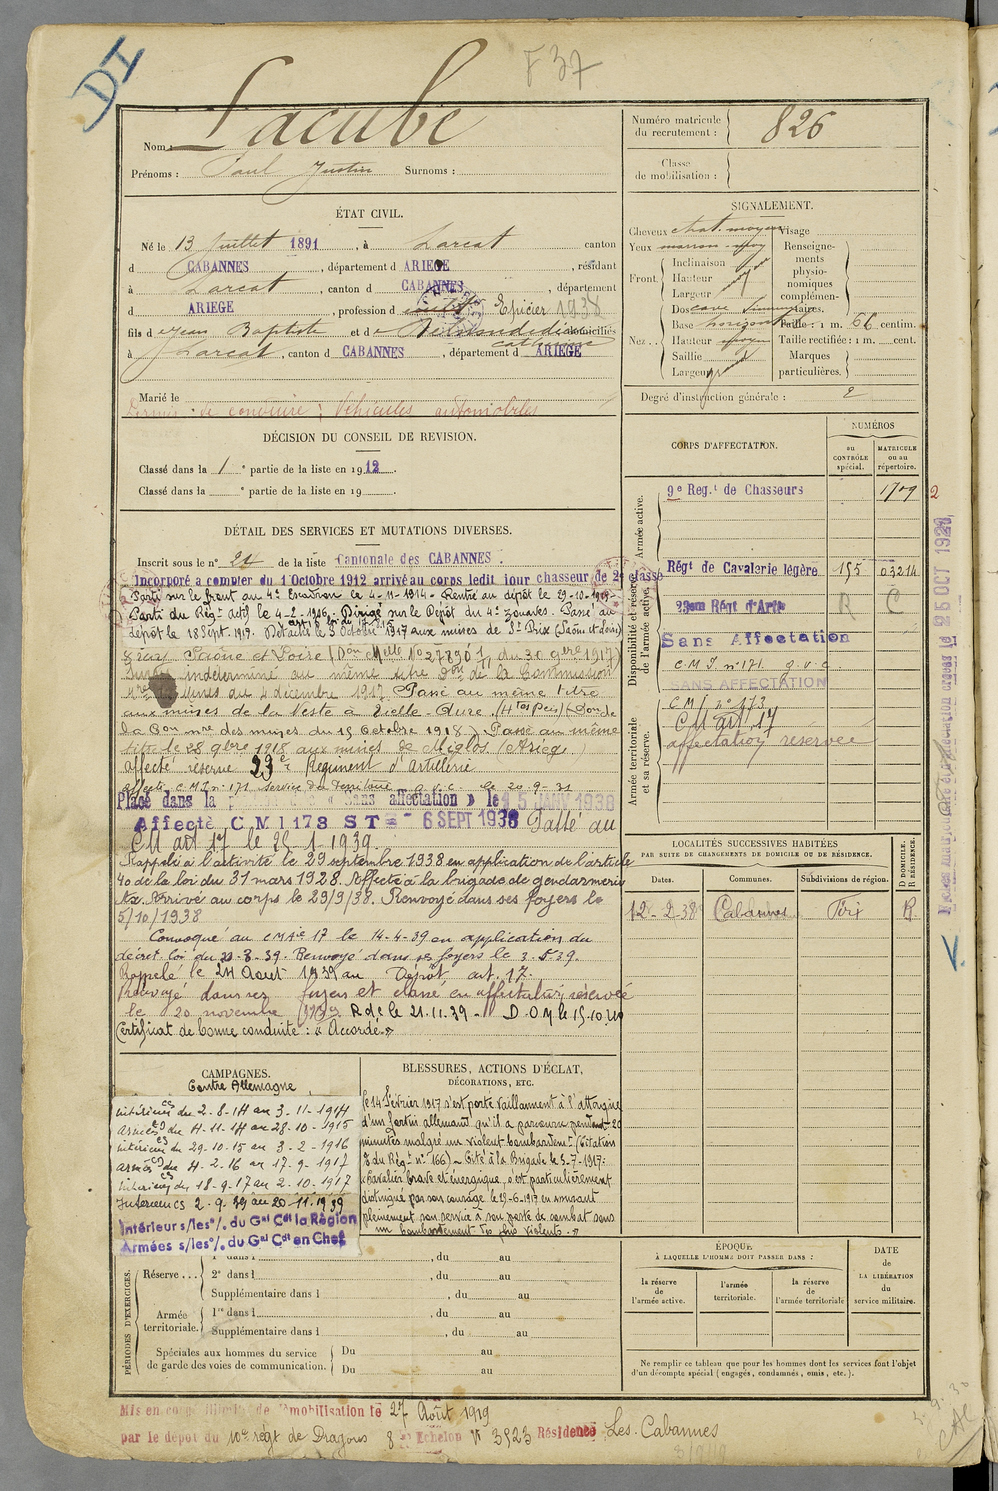 DI
F 37
Nom : Lacube
Prénoms : Paul Justin Surnoms :
Numéro matricule du recrutement : 826
Classe de mobilisation :
ÉTAT CIVIL.
Né le 13 Juillet 1891, à Larcat canton
d CABANNES, département d ARIEGE, résidant
à Larcat, canton d CABANNES, département
d ARIEGE, profession d Epicier 1938
fils d e Jean Baptiste et d domiciliés
Catherine
à Larcat, canton d CABANNES, département d ARIEGE
Marié le
Permis de conduire : Véhicules automobiles
SIGNALEMENT.
Cheveux chat. moyen Visage
Yeux marron
Renseignements physionomiques complémentaires.
Front. Inclinaison
Hauteur
Largeur
Nez. Dos cave
Base horizont
Hauteur moyen
Saillie
Largeur
Taille : 1 m. 66 centim.
Taille rectifiée : 1 m. cent.
Marques particulières.
Degré d'instruction générale : 2
DÉCISION DU CONSEIL DE REVISION.
Classé dans la 1 e partie de la liste en 1912.
Classé dans la e partie de la liste en 19
DÉTAIL DES SERVICES ET MUTATIONS DIVERSES.
Inscrit sous le n° 24 de la liste Cantonale des CABANNES.
Incorporé a compter du 1 Octobre 1912 arrivé au corps ledit jour chasseur de 2e classe
Parti sur le front au 4e Escadron le 4-11-1914 - Rentré au dépôt le 29-10-1915
Parti du Régt actif le 4-2-1916. Dirigé sur le Dépôt du 4e Zouaves. Passé au
dépôt le 18 Sept. 1917. Détaché le 3 Octobre 1917 aux mines de St Prix (Saône et Loire)
Saône et Loire (Don Melle No 27890 1/11 du 30 9bre 1917)
indéterminé au même titre Don de la Commission
des mines du 4 décembre 1917. Passé au même titre
aux mines de la Veste à Vielle-Aure (Htes Pées) (Don de
la Con mre des mines du 15 Octobre 1918) Passé au même
titre le 28 9bre 1918 aux mines de Miglos (Ariège)
affecté réserve 23e Régiment d'Artillerie
affecté C.M.I. n° 171 Service du Territoire g.v.c. le 20-9-31
Placé dans la « Sans affectation » le 15 JANV 1938
Affecté C M I 173 S T = - 6 SEPT 1938 Passé au
CM art 17 le 25-1-1939.
Rappelé à l'activité le 29 septembre 1938 en application de l'article
40 de la loi du 31 mars 1928. Affecté à la brigade de gendarmerie
Arrivé au corps le 29/9/38. Renvoyé dans ses foyers le
5/10/1938
Convoqué au CM Aie 17 le 14-4-39 en application du
décret loi du 20-3-39. Renvoyé dans ses foyers le 3.5.39.
Rappelé le 24 Août 1939 au Dépôt art. 17.
Renvoyé dans ses foyers et classé en affectation réservée
le 20 novembre 1939 R d c le 21.11.39 - D.O.M le 15.10.40
Certificat de bonne conduite : « Accordé »
CORPS D'AFFECTATION.
NUMÉROS
au CONTRÔLE spécial.
MATRICULE ou au répertoire.
Armée active.
9e Regt de Chasseurs 1709 2
Disponibilité et réserve de l'armée active.
Régt de Cavalerie légère 155 03214
23em Régt d'Artie R C
Sans Affectation
C M I n° 171 g.v.c
SANS AFFECTATION
Armée territoriale et sa réserve.
C M I n° 173
CM art 17
affectation réservée
25 OCT 1920
LOCALITÉS SUCCESSIVES HABITÉES
PAR SUITE DE CHANGEMENTS DE DOMICILE OU DE RÉSIDENCE.
Dates. Communes. Subdivisions de région. D DOMICILE. R RÉSIDENCE.
12-2-38 Cabannes Foix R
CAMPAGNES.
Contre Allemagne
Intérieur du 2-8-14 au 3-11-1914
Armées du 4-11-14 au 28-10-1915
Intérieur du 29-10-15 au 3-2-1916
Armées du 4-2-16 au 17-9-1917
Intérieur du 18-9-17 au 2-10-1917
Intérieur CS 2-9-39 au 20-11-1939
Intérieur s/les % du Gal Cdt la Région
Armées s/les % du Gal Cdt en Chef
BLESSURES, ACTIONS D'ÉCLAT,
DÉCORATIONS, ETC.
Le 14 Février 1917 s'est porté vaillamment à l'attaque
d'un fortin allemand qu'il a parcouru pendant 20
minutes malgré un violent bombardemt (Citation
du Régt n° 166) - Cité à la Brigade le 5-7-1917 :
« Cavalier brave et énergique, s'est particulièrement
distingué par son courage le 29-6-1917 en assurant
pleinement son service à son poste de combat sous
un bombardement des plus violents. »
PÉRIODES D'EXERCICES.
1re dans l , du au
Réserve ... 2e dans l , du au
Supplémentaire dans l , du au
Armée territoriale. 1re dans l , du au
Supplémentaire dans l , du au
Spéciales aux hommes du service de garde des voies de communication. Du au
Du au
ÉPOQUE
À LAQUELLE L'HOMME DOIT PASSER DANS :
la réserve de l'armée active.
l'armée territoriale.
la réserve de l'armée territoriale
DATE DE LA LIBÉRATION du service militaire.
Ne remplir ce tableau que pour les hommes dont les services font l'objet
d'un décompte spécial (engagés, condamnés, omis, etc.).
Mis en congé illimité de démobilisation le 27 Août 1919
par le dépôt du 10e régt de Dragons 8e Echelon N° 3523 Résidence Les Cabannes